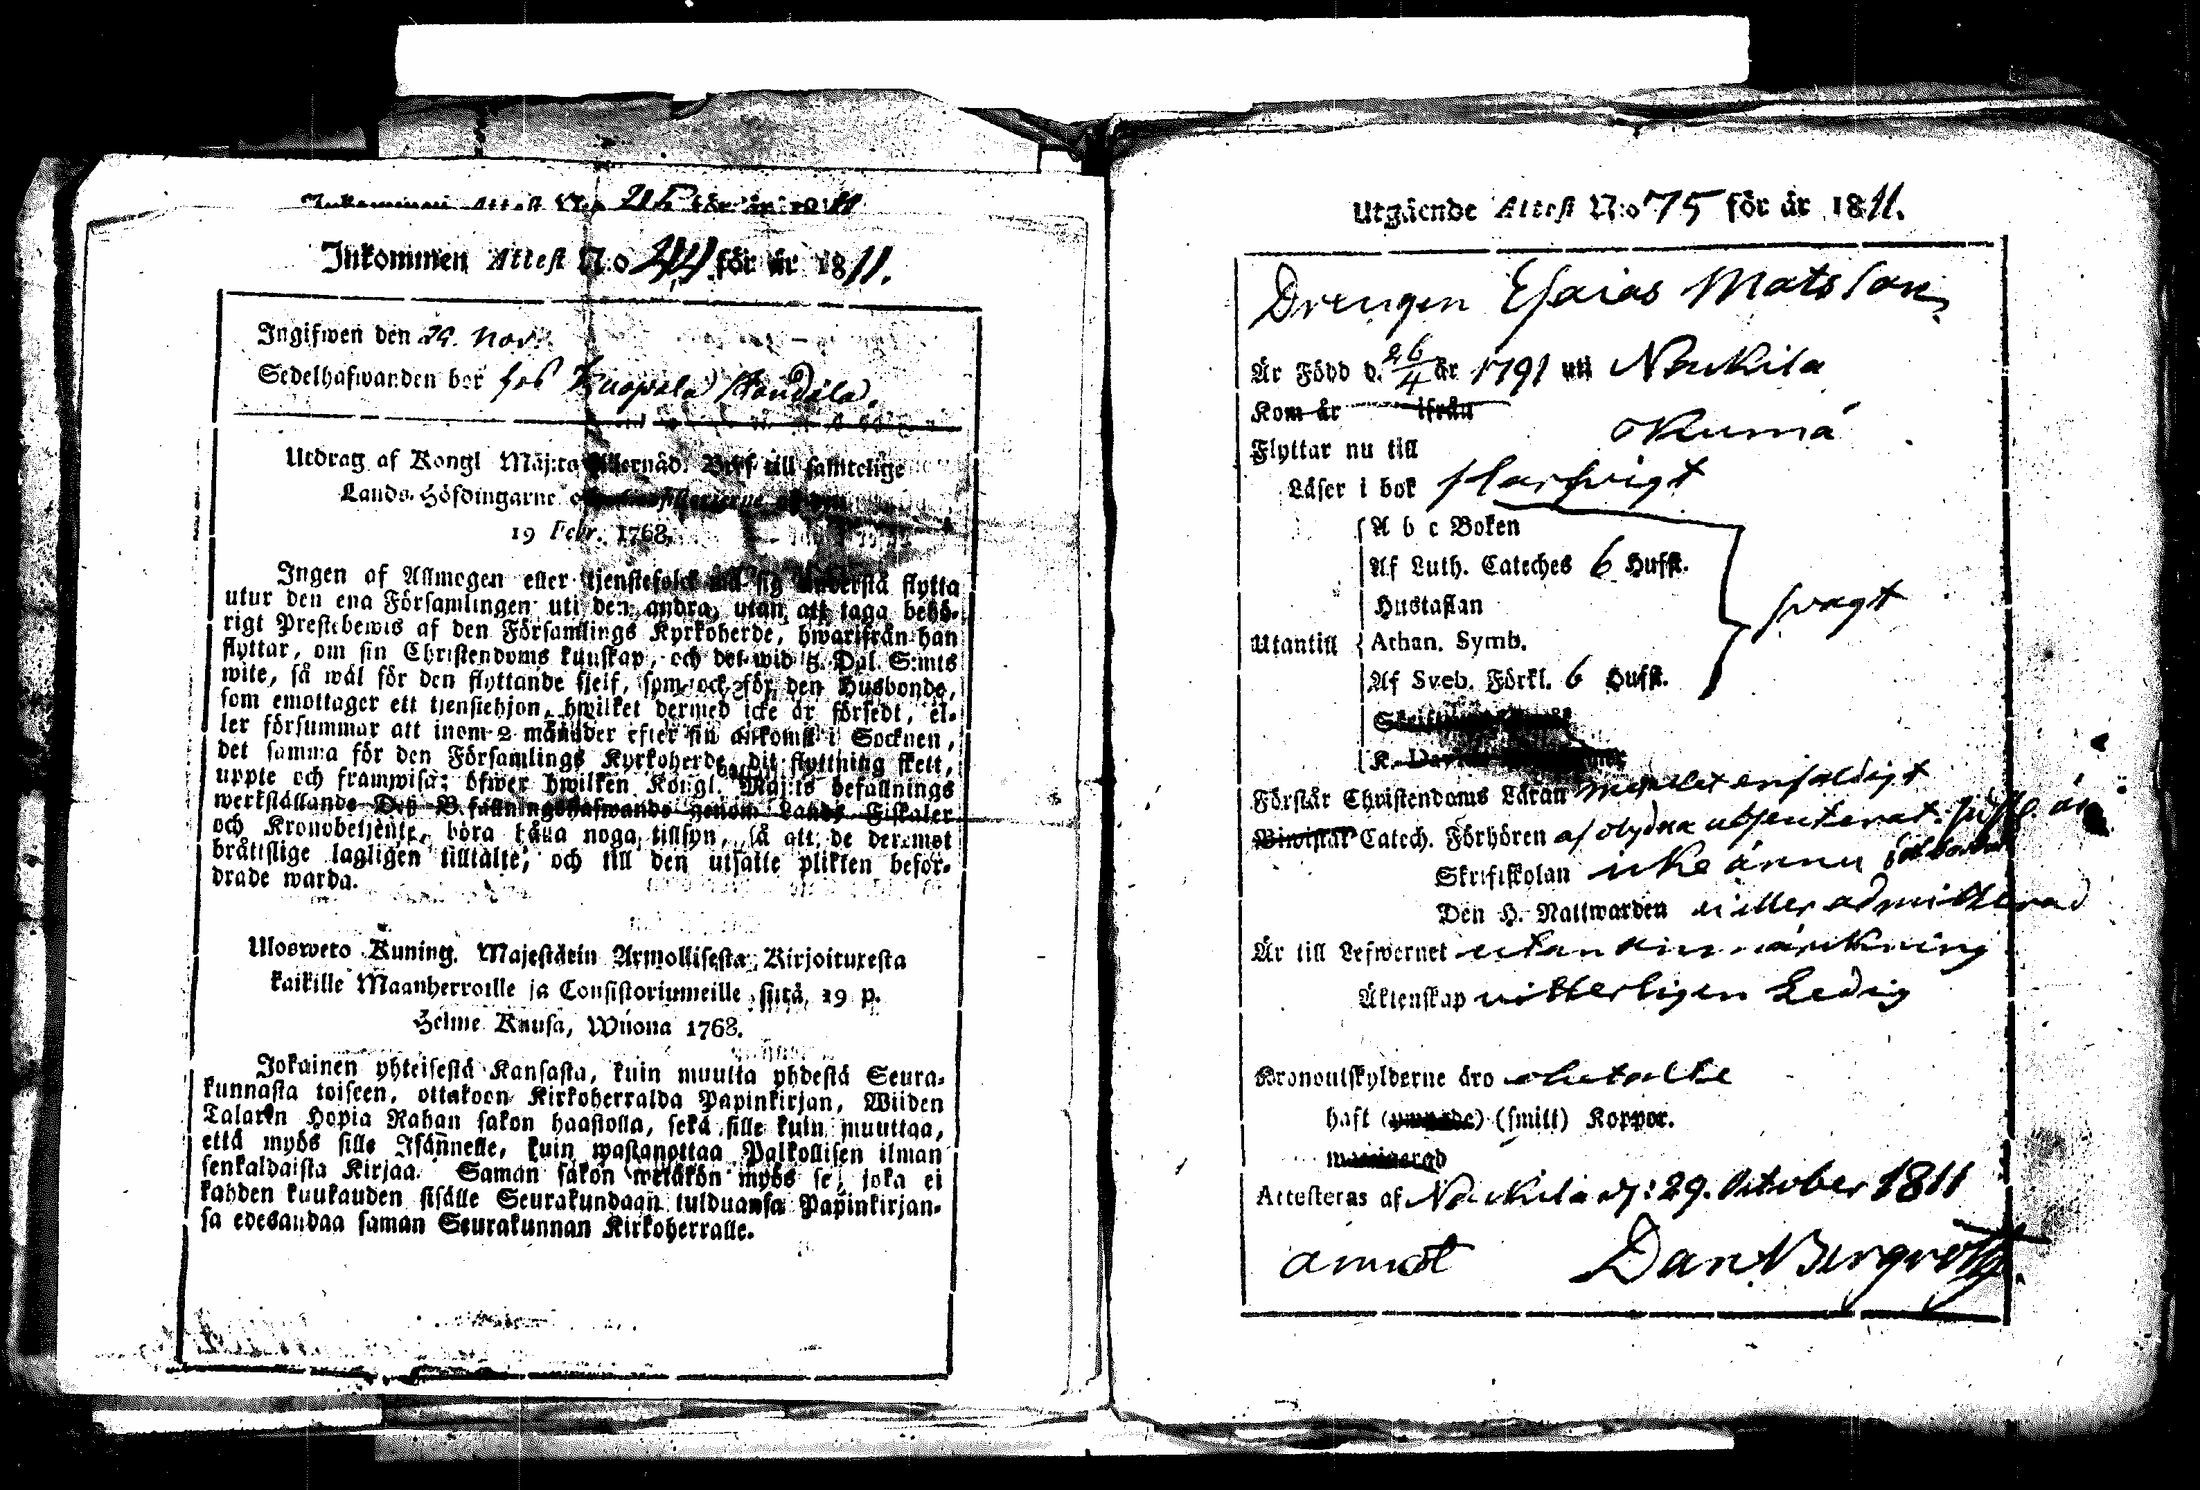 Inkommen Attest N:o 215 för år 1811
Inkommen Attest N:o 214 för år 1811.
Ingifwen den 29. Nov.
Sedelhafwanden bor hos
Utdrag af Kongl Maj:ts Allernåd. Bref till samtelige
Lands-Höfdingarne
19 Febr. 1768.
Ingen af Allmogen eller tjenstefolck må sig understå flytta
utur den ena Församlingen uti den andra, utan att taga behö-
rigt Prestebewis af den Församlings Kyrkoherde, hwarifrån han
flyttar, om sin Christendoms kunskap, och det wid 5. Dal. S:mts
wite, så wäl för den flyttande sjelf, som ock för den Husbonde,
som emottager ett tjenstehjon, hwilket dermed icke är försedt, el-
ler försummar att inom 2 månader efter sin ankomst i Socknen,
det samma för den Församlings Kyrkoherde, dit flyttning skett,
uppte och framwisa; öfwer hwilken Kongl. Maj:ts befallnings
werkställande Deß Befallningshafwande genom Lands-Fiskaler
och Kronobetjente, böra hålla noga tillsyn, så att de deremot
bråttslige lagligen tilltalte, och till den utsatte plikten beför-
drade warda.
Ulosweto Kuning. Majestätin Armollisesta Kirjoituxesta
kaikille Maanherroille ja Consistoriumeille siitä 19 p.
Helme Kuusa, Wuona 1768.
Jokainen yhteisestä Kansasta, kuin muutta yhdestä Seura-
kunnasta toiseen, ottakoon Kirkoherralda Papinkirjan, Wiiden
Talarin Hopia Rahan sakon haastolla, sekä sille kuin muuttaa,
että myös sille Isännelle, kuin wastanottaa Palkollisen ilman
senkaldaista Kirjaa. Saman sakon wetäkön myös se, joka ei
kahden kuukauden sisälle Seurakundaan tulduansa Papinkirjan-
sa edesandaa saman Seurakunnan Kirkoherralle.
Utgående Attest N:o 75 för år 1811.
Drengen Esaias Matsson
Är Född d. 26/4 år 1791 uti Nykila
Kom år ifrån
Flyttar nu till
Läser i bok
A b c Boken
Af Luth. Cateches 6 Hufst.
Hustaflan
Utantill Athan. Symb. svagt
Af Sveb. Förkl. 6 Hufst.
Förstår Christendoms Läran mycket enfaldigt
Biwistat Catech. Förhören
Skriftskolan icke ännu
Den H. Nattwarden ei eller admitterad
Är till Lefwernet utan anmärkning
Äktenskap witterligen Ledig
Kronoutskylderne äro obetalte
haft (smitt) Koppor.
Attesteras af Nykila d: 29. October 1811
Dan Bergroth